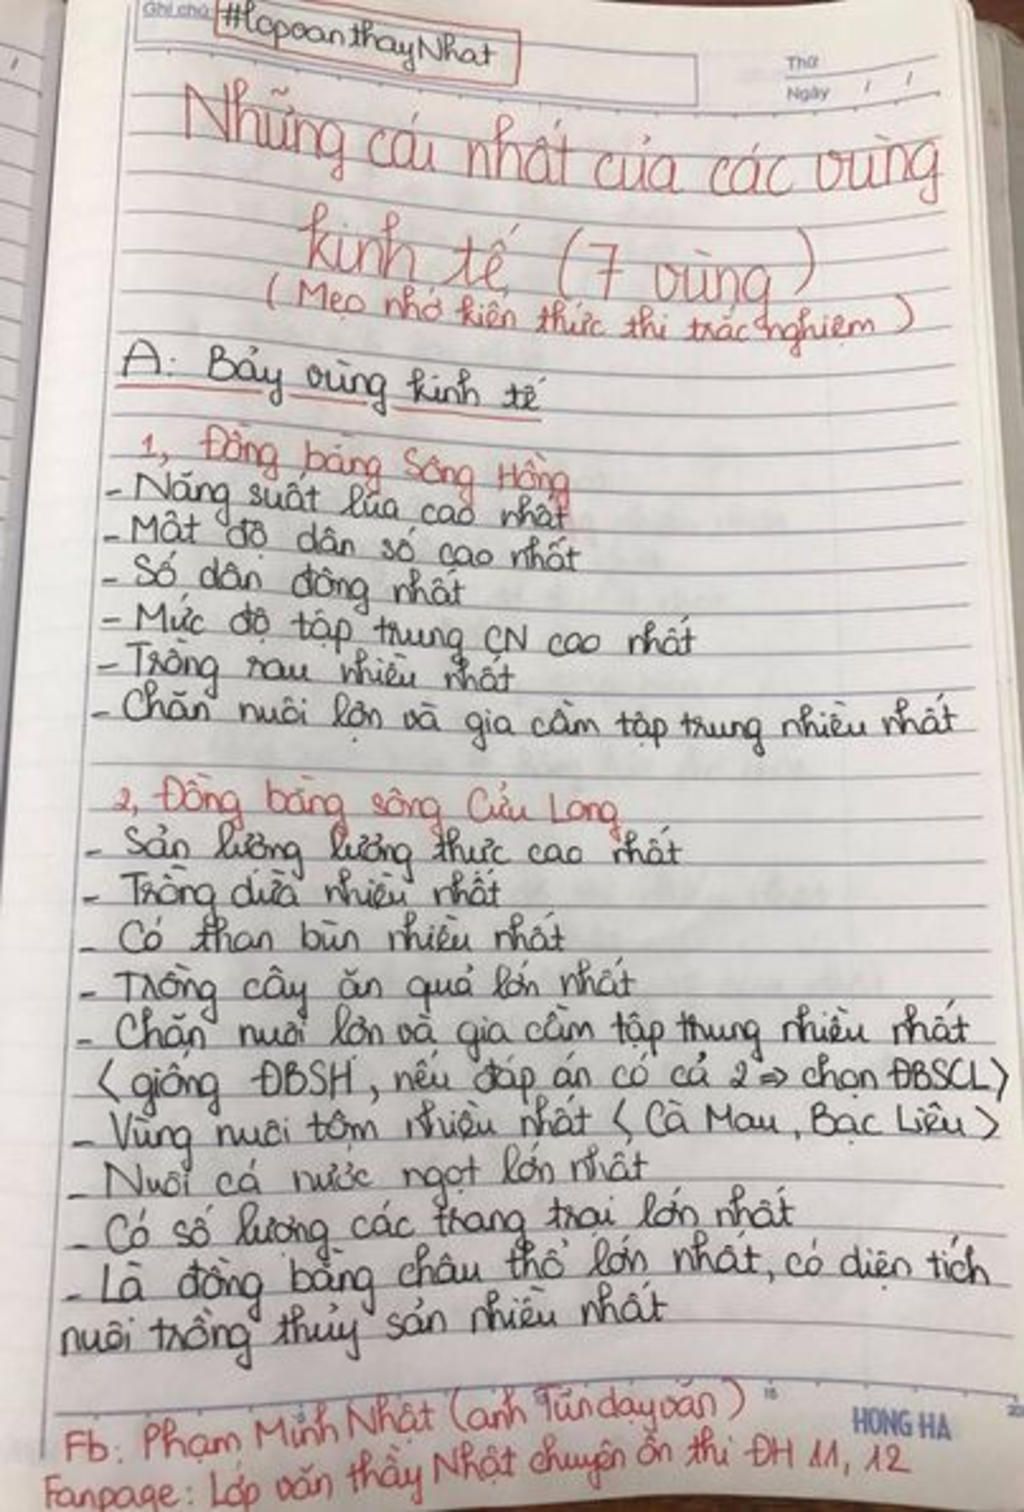 Ghi chú: #lopoanthayNhat
Thứ
Ngày / /
Những cái nhất của các vùng
kinh tế (7 vùng)
(Mẹo nhớ kiến thức thi trắc nghiệm)
A: Bảy vùng kinh tế
1, Đồng bằng Sông Hồng
- Năng suất lúa cao nhất
- Mật độ dân số cao nhất
- Số dân đông nhất
- Mức độ tập trung CN cao nhất
- Trồng rau nhiều nhất
- Chăn nuôi lợn và gia cầm tập trung nhiều nhất
2, Đồng bằng sông Cửu Long
- Sản lượng lương thực cao nhất
- Trồng dừa nhiều nhất
- Có than bùn nhiều nhất
- Trồng cây ăn quả lớn nhất
- Chăn nuôi lợn và gia cầm tập trung nhiều nhất
(giống ĐBSH, nếu đáp án có cả 2 => chọn ĐBSCL)
- Vùng nuôi tôm nhiều nhất (Cà Mau, Bạc Liêu)
- Nuôi cá nước ngọt lớn nhất
- Có số lượng các trang trại lớn nhất
- Là đồng bằng châu thổ lớn nhất, có diện tích
nuôi trồng thủy sản nhiều nhất
15
20
HONG HA
Fb: Phạm Minh Nhật (anh Tũn dạy văn)
Fanpage: Lớp văn thầy Nhật chuyên ôn thi ĐH 11, 12